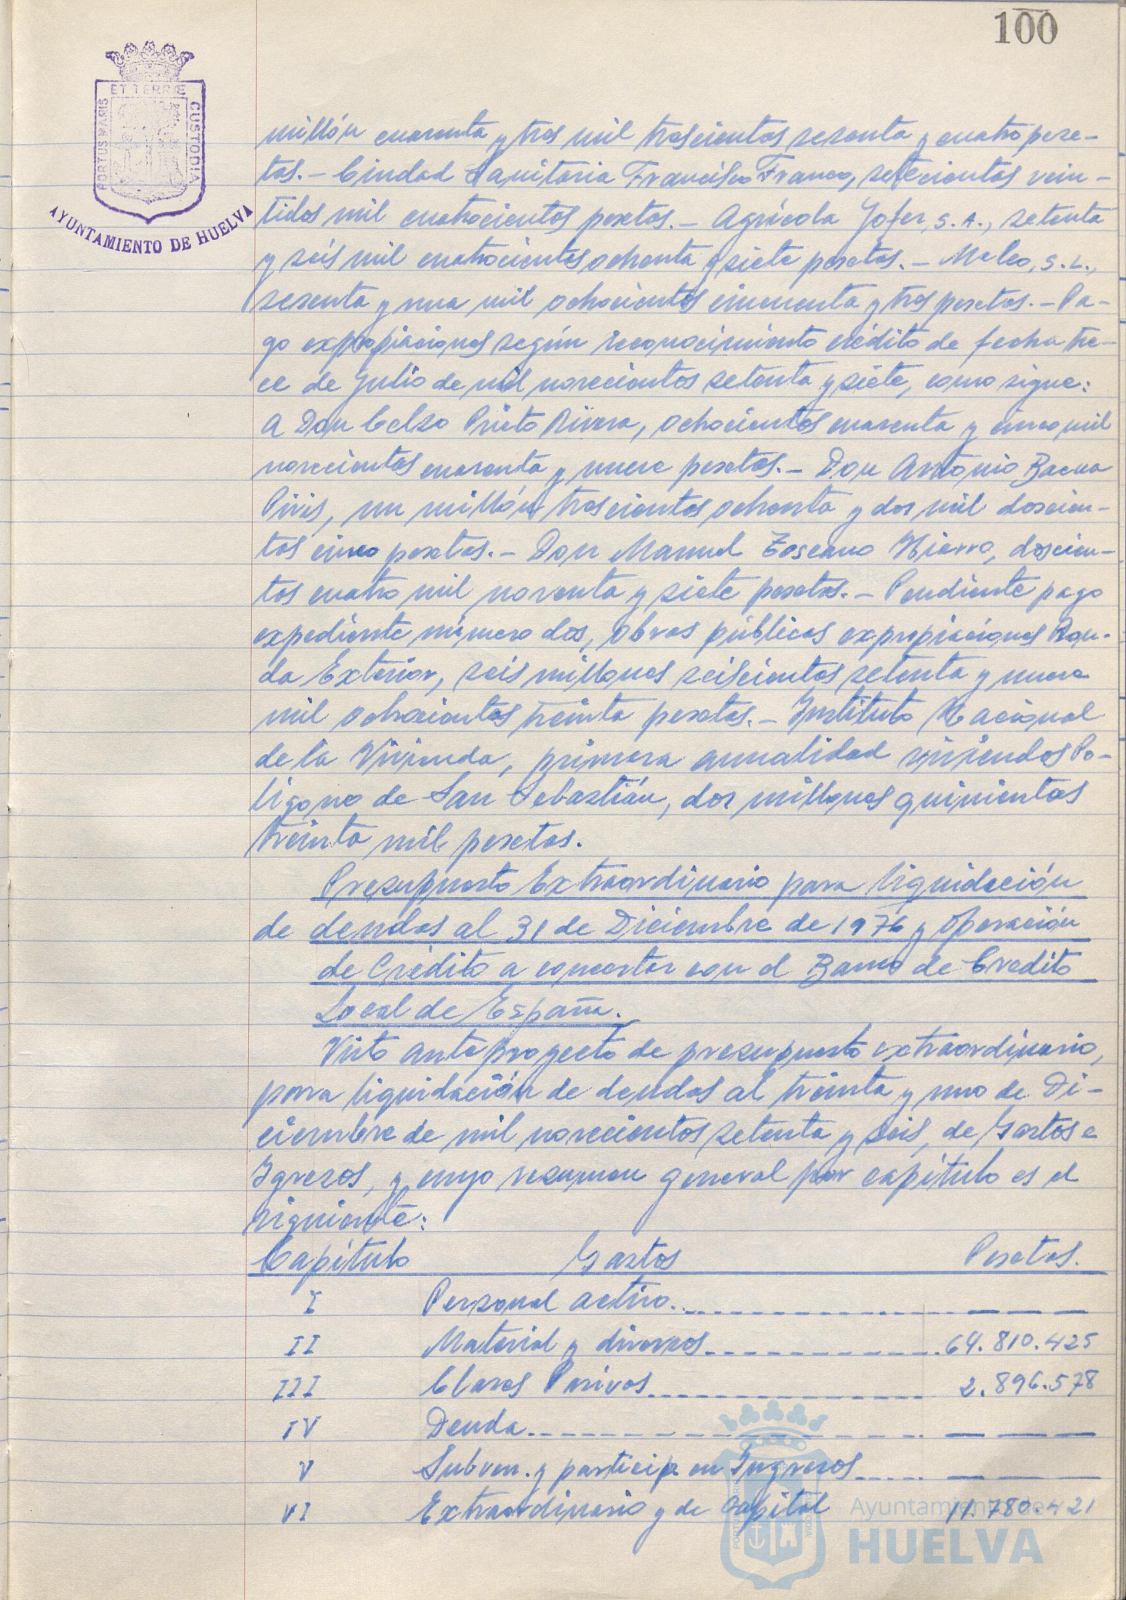 100
ET TERRÆ
PORTUS MARIS
CUSTODIA
AYUNTAMIENTO DE HUELVA
millón cuarenta y tres mil trescientos sesenta y cuatro pese-
tas.- Ciudad Sanitaria Francisco Franco, setecientos vein-
tidos mil cuatrocientos pesetas.- Agrícola Yofer, S.A., setenta
y seis mil cuatrocientos ochenta y siete pesetas.- Maleo, S.L.,
sesenta y una mil ochocientos cincuenta y tres pesetas.- Pa-
go expropiaciones según reconocimiento crédito de fecha tre-
ce de Julio de mil novecientos setenta y siete, como sigue:
a Don Celso Prieto Rivera, ochocientos cuarenta y cinco mil
novecientos cuarenta y nueve pesetas.- Don Antonio Baena
Piris, un millón trescientos ochenta y dos mil doscien-
tos cinco pesetas.- Don Manuel Toscano Hierro, doscien-
tos cuatro mil noventa y siete pesetas.- Pendiente pago
expediente número dos, obras públicas expropiaciones Ron-
da Exterior, seis millones seiscientos setenta y nueve
mil ochocientos treinta pesetas.- Instituto Nacional
de la Vivienda, primera anualidad viviendas Po-
lígono de San Sebastián, dos millones quinientas
treinta mil pesetas.
Presupuesto Extraordinario para liquidación
de deudas al 31 de Diciembre de 1976 y Operación
de Crédito a concertar con el Banco de Credito
Local de España.
Visto anteproyecto de presupuesto extraordinario,
para liquidación de deudas al treinta y uno de Di-
ciembre de mil novecientos setenta y seis, de Gastos e
Igresos, y cuyo resumen general por capítulo es el
siguiente:
Capítulo Gastos Pesetas.
I Personal activo
II Material y diversos 64.810.425
III Clases Pasivas 2.896.578
IV Deuda
V Subven. y particip. en Ingresos
VI Extraordinario y de Capital 11.780.421
Ayuntamiento de
HUELVA